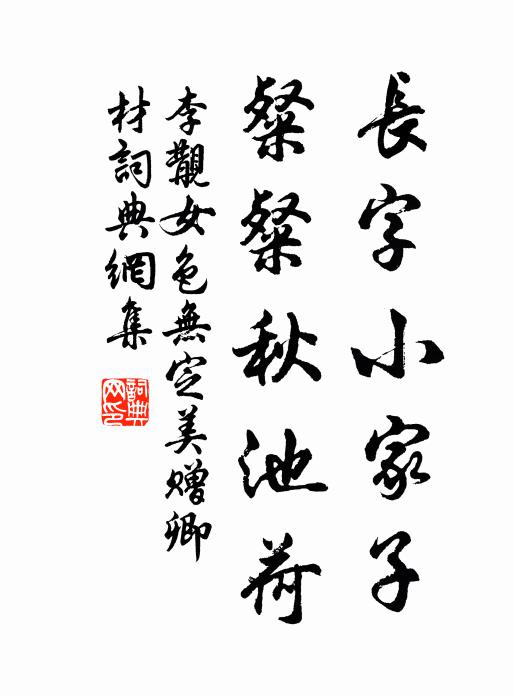 長字小家子
粲粲秋池荷
李覯女色無定美贈卿
材詞典網集
詞典
网印